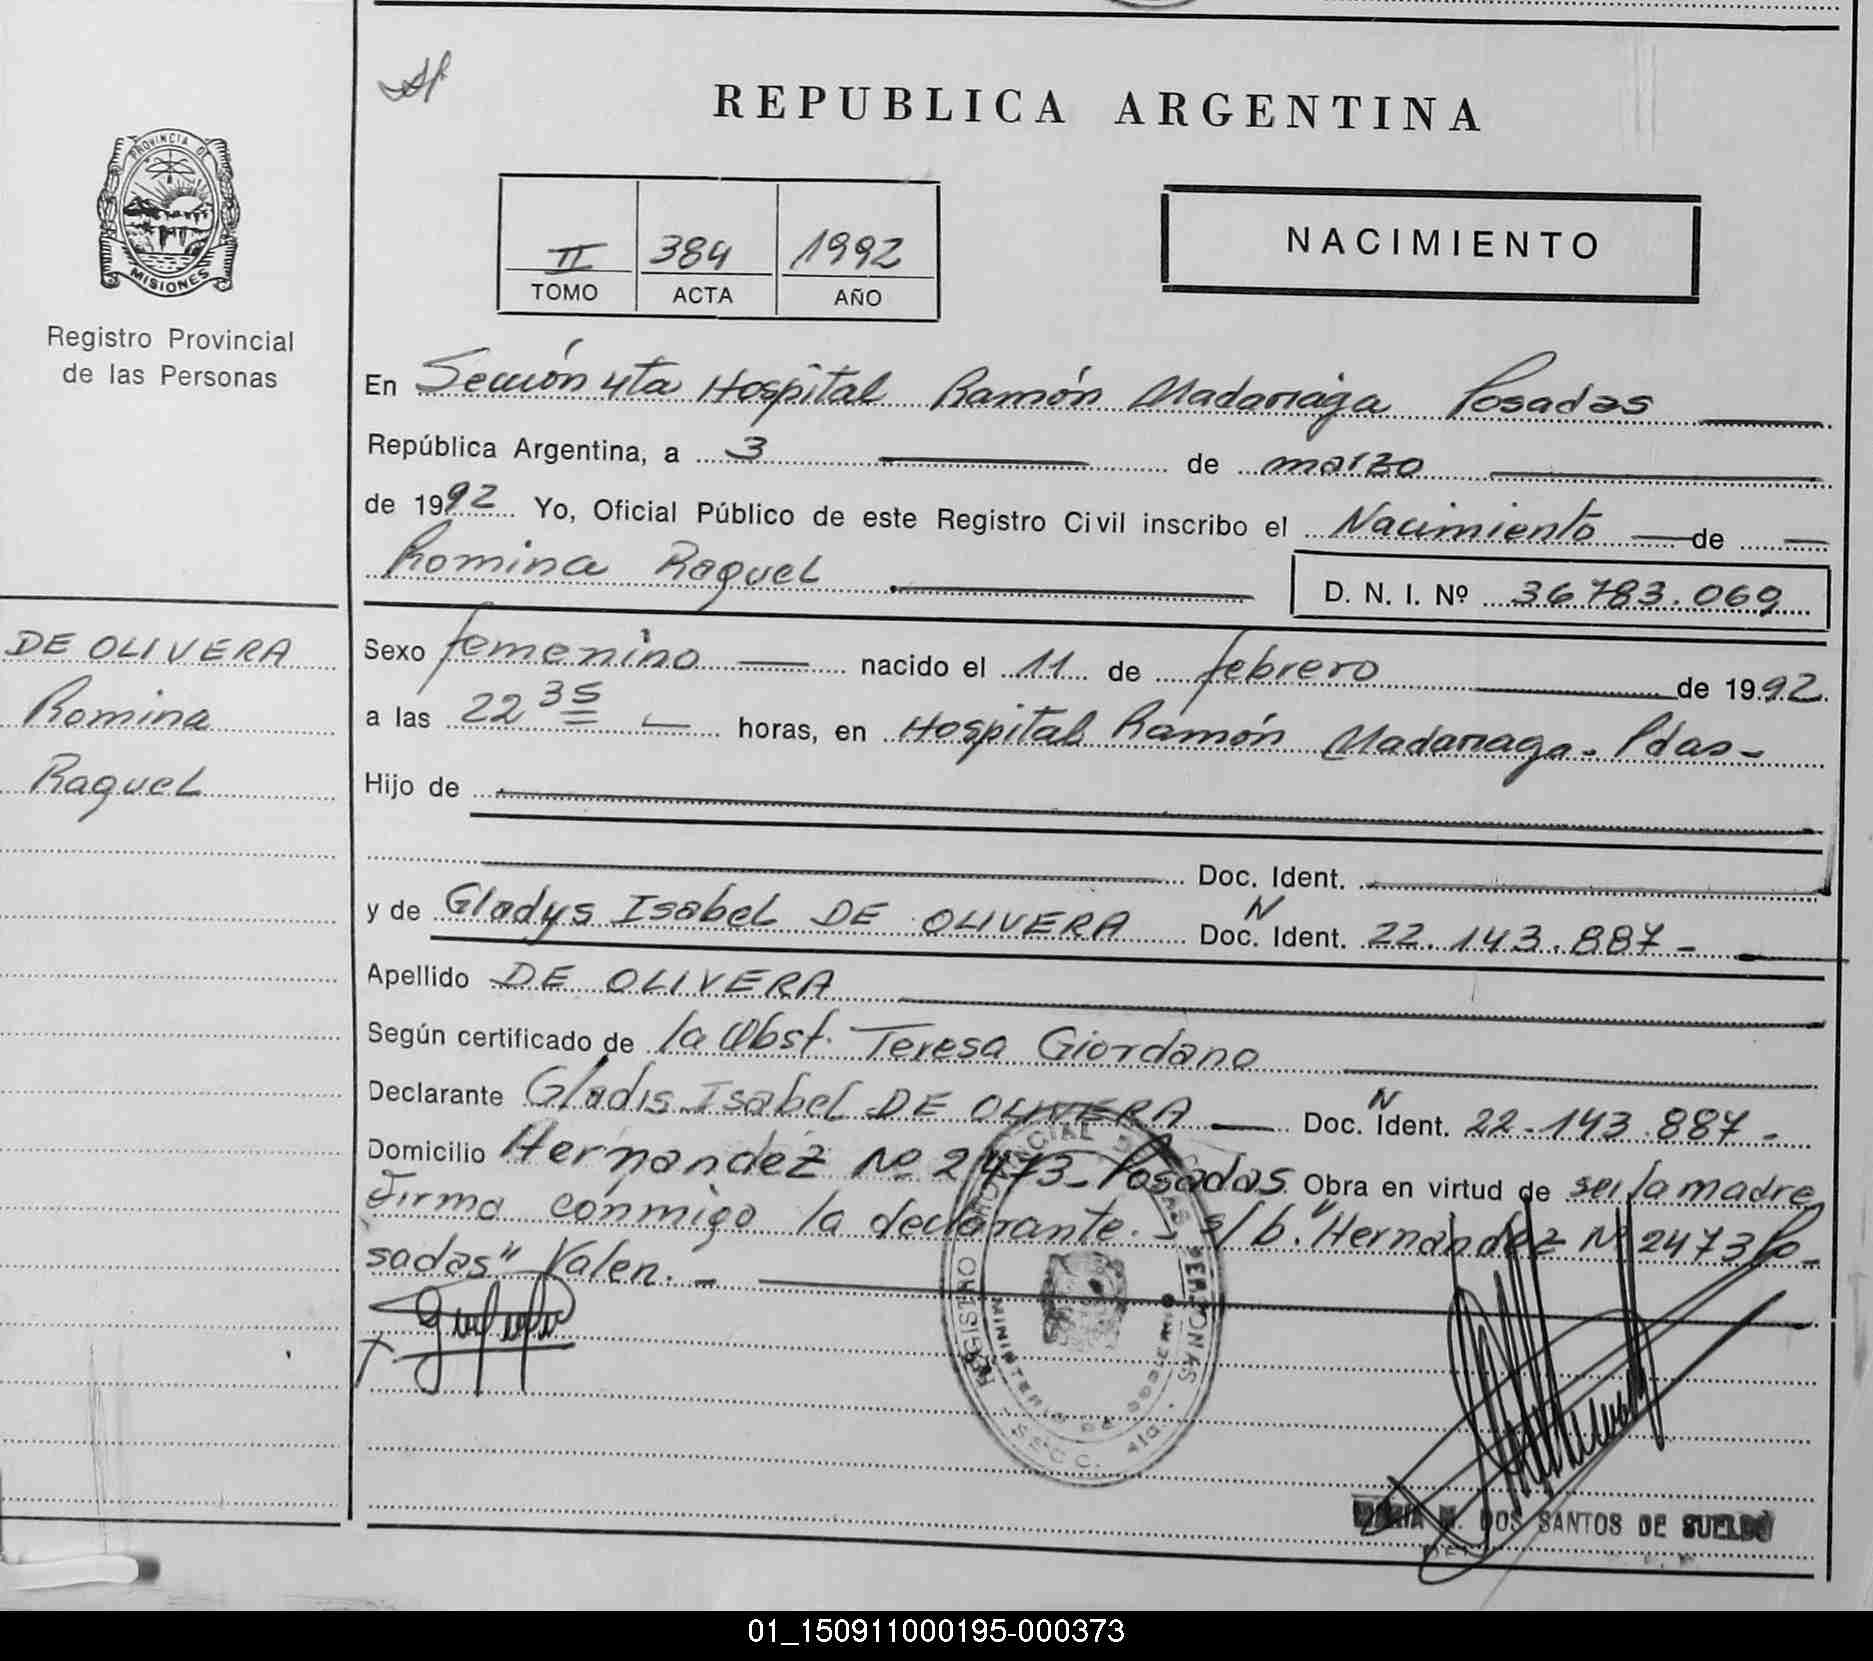 REPUBLICA ARGENTINA
PROVINCIA DE
MISIONES
Registro Provincial
de las Personas
II 384 1992
TOMO ACTA AÑO
NACIMIENTO
En Sección 4ta Hospital Ramón Madariaga Posadas
República Argentina, a 3 de marzo
de 1992 Yo, Oficial Público de este Registro Civil inscribo el Nacimiento de
Romina Raquel D. N. I. Nº 36783.069
DE OLIVERA
Romina
Raquel
Sexo femenino nacido el 11 de febrero de 1992.
a las 22 35 horas, en Hospital Ramón Madariaga - Pdas -
Hijo de
Doc. Ident.
y de Gladys Isabel DE OLIVERA Doc. N Ident. 22.143.887 -
Apellido DE OLIVERA
Según certificado de la Obst. Teresa Giordano
Declarante Gladis Isabel DE OLIVERA Doc. N Ident. 22.143.887 -
Domicilio Hernandez Nº 2473 - Posadas Obra en virtud de ser la madre
Firma conmigo la declarante. - s/b. "Hernández Nº 2473 Po-
sadas" Valen. -
REGISTRO PROVINCIAL DE LAS PERSONAS
MINISTERIO DE GOBIERNO
MARIA M. DOS SANTOS DE SUELDO
01_150911000195-000373